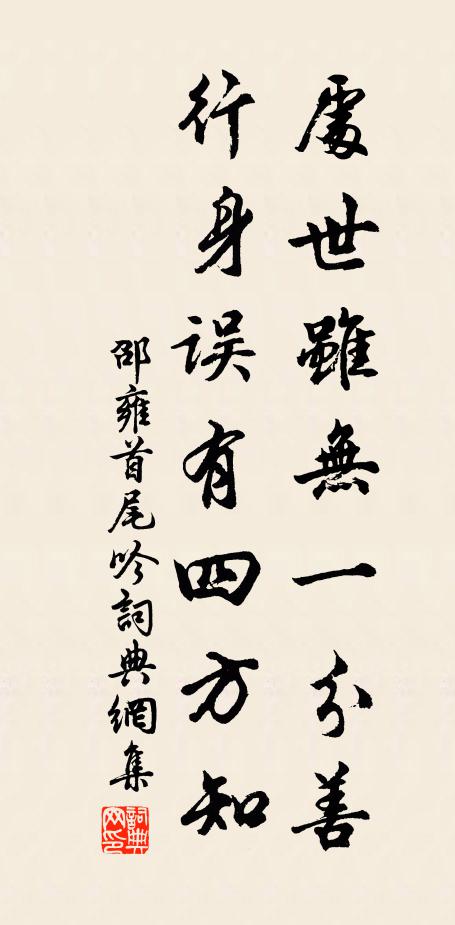 處世雖無一分善
行身误有四方知
邵雍首尾吟詞典網集
詞典网印